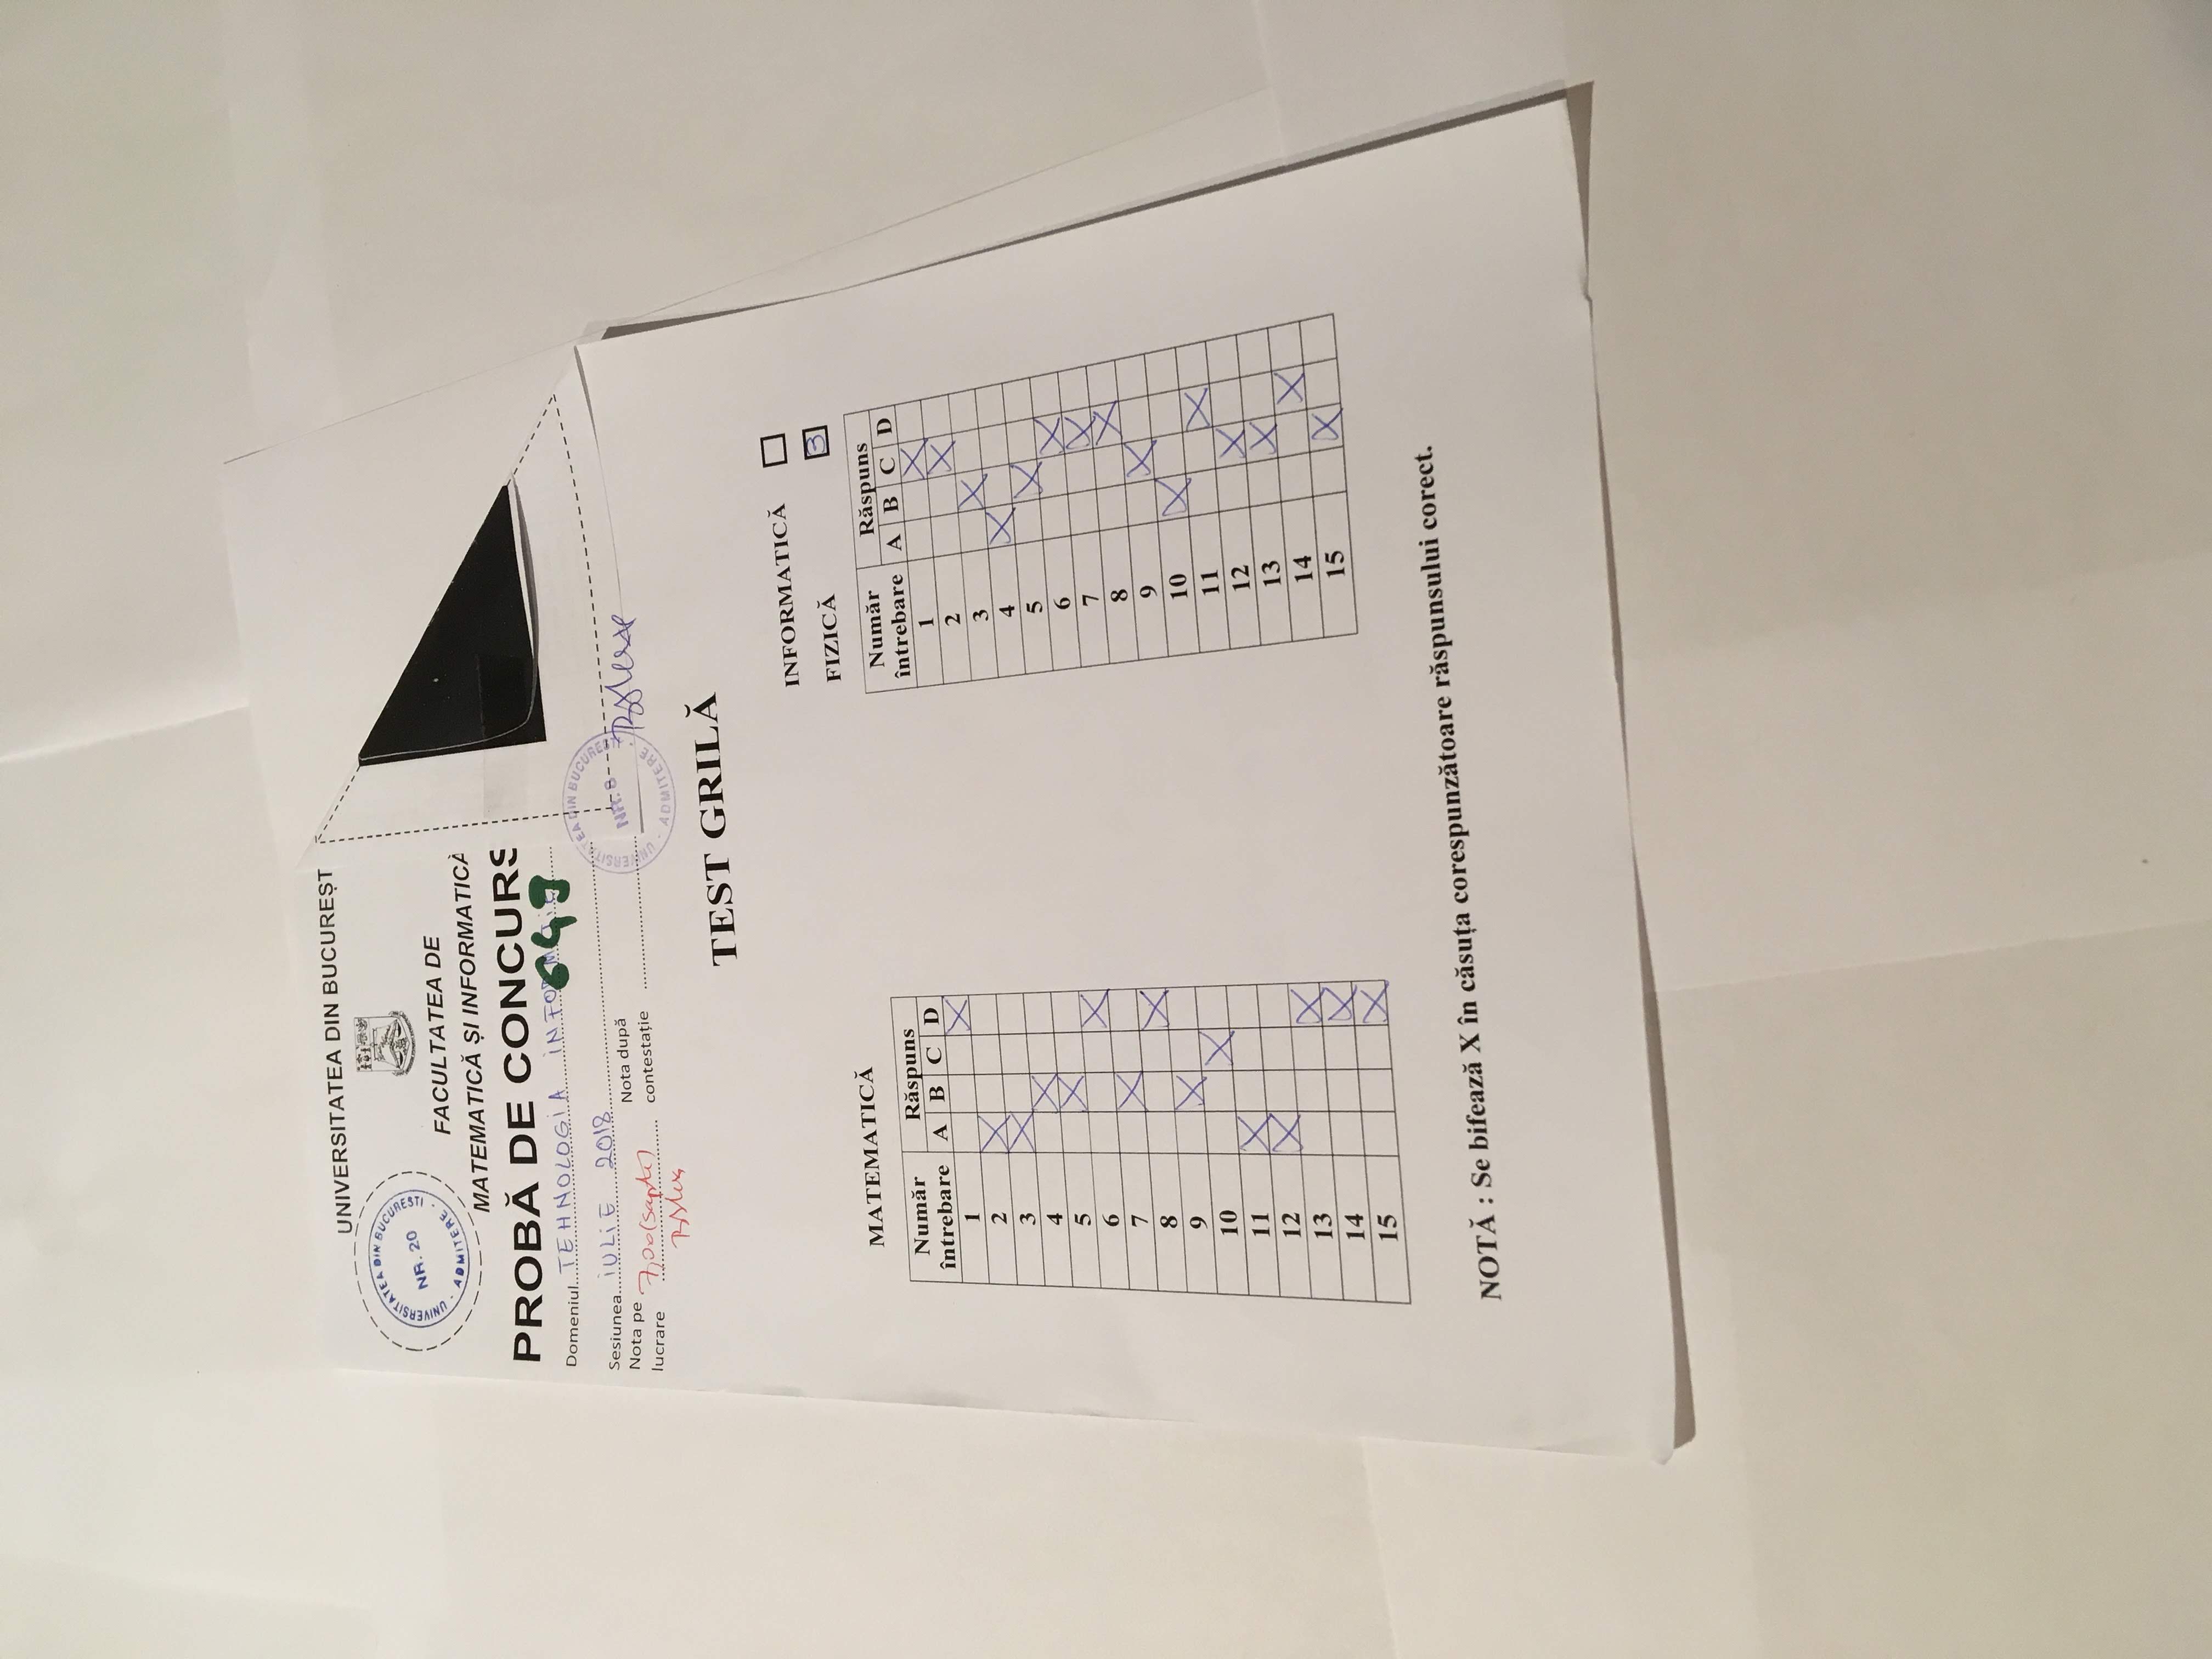 UNIVERSITATEA DIN BUCUREȘT
UNIVERSITATEA DIN BUCUREȘTI
NR. 20
· ADMITERE ·
FACULTATEA DE
MATEMATICĂ ȘI INFORMATICĂ
PROBĂ DE CONCURS
649
Domeniul TEHNOLOGIA
Sesiunea IULIE 2018
Nota pe lucrare 7,00 (șapte)
Nota după contestație
UNIVERSITATEA DIN BUCUREȘTI
NR. 8
· ADMITERE ·
TEST GRILĂ
INFORMATICĂ
FIZICĂ 3
MATEMATICĂ
Număr întrebare Răspuns
A B C D
1 X
2 X
3 X
4 X
5 X
6 X
7 X
8 X
9 X
10 X
11 X
12 X
13 X
14 X
15 X
Număr întrebare Răspuns
A B C D
1 X
2 X
3 X
4 X
5 X
6 X
7 X
8 X
9 X
10 X
11 X
12 X
13 X
14 X
15 X
NOTĂ : Se bifează X în căsuța corespunzătoare răspunsului corect.